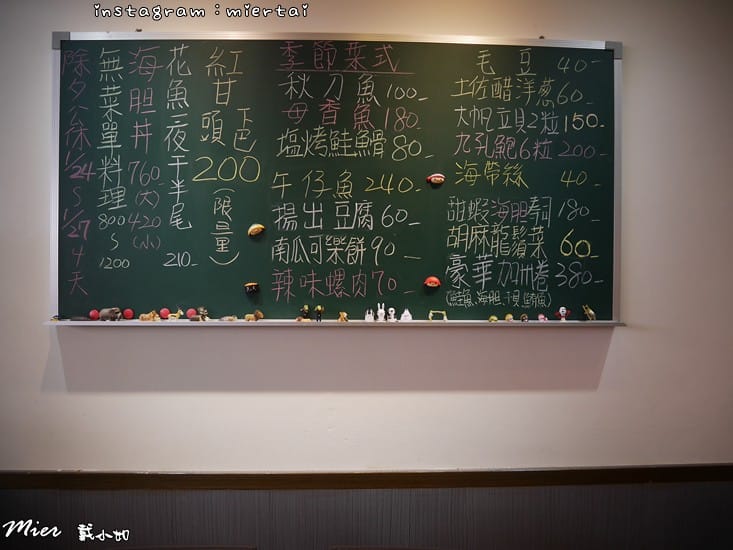 instagram：miertai
除夕公休1/24 S 1/27 4天
無菜單料理 800 S 1200
海胆丼 760(大) 420(小)
花魚一夜干半尾 210-
紅甘頭 下巴 200 (限量)
季節菜式
秋刀魚100-
母香魚180-
塩烤鮭魚骨80-
午仔魚240-
揚出豆腐60-
南瓜可樂餅90-
辣味螺肉70-
毛豆 40-
土佐醋洋葱60-
大帆立貝2粒150-
九孔鮑6粒200-
海帶絲 40-
甜蝦海胆壽司180-
胡麻龍鬚菜 60-
豪華加州卷380-
(鮭魚、海胆、干貝、鮪魚)
Mier 戴小如